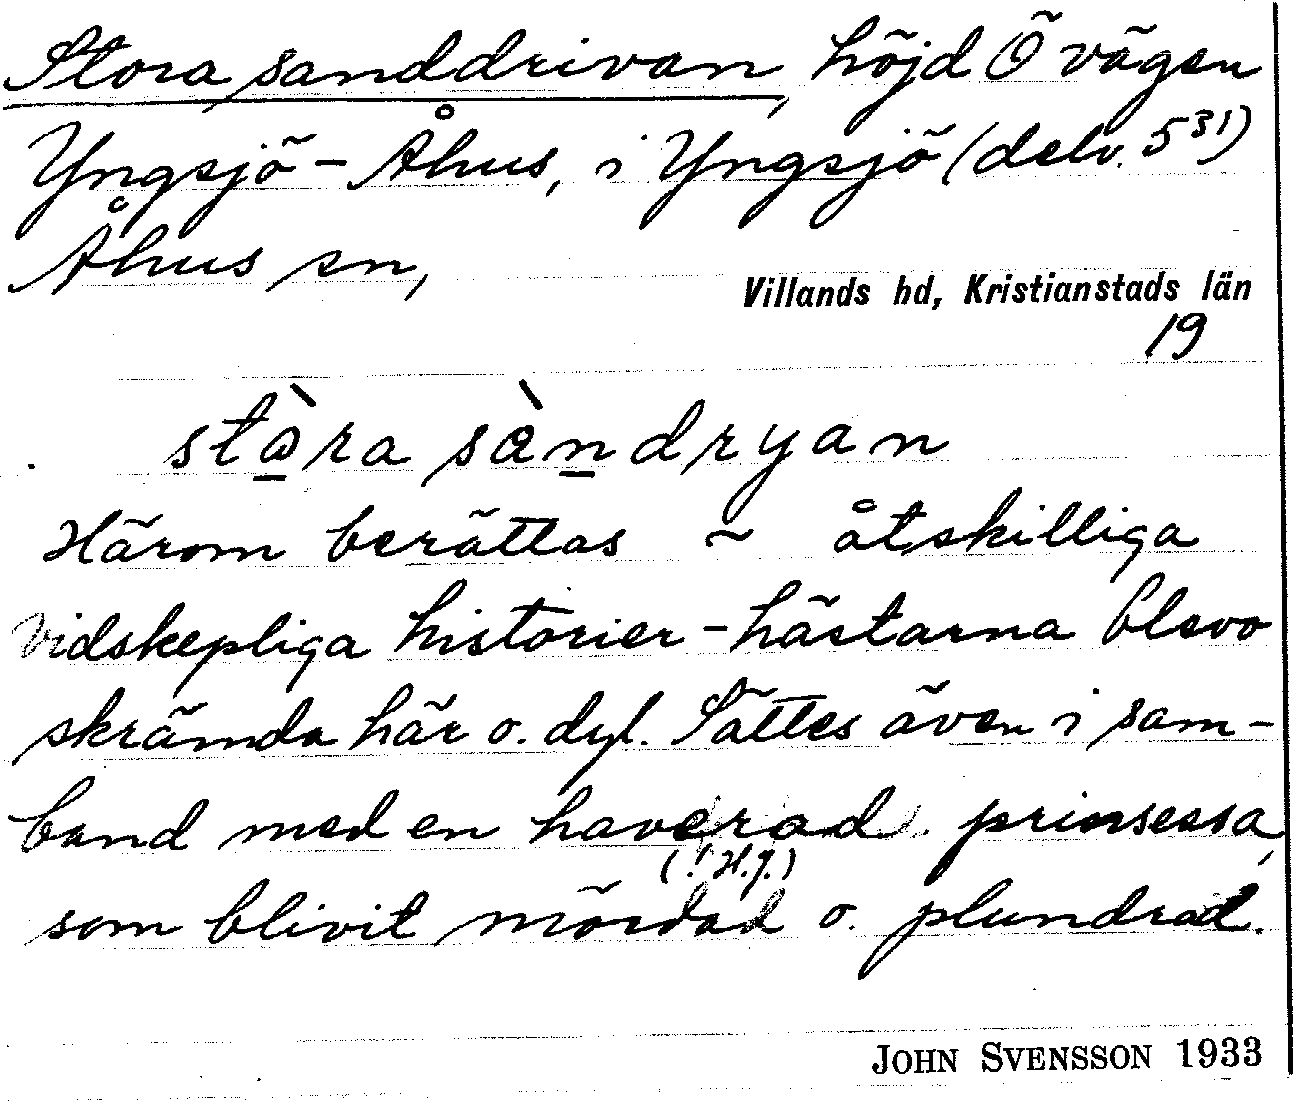 Stora sanddrivan, höjd Ö vägen
Yngsjö – Åhus, i Yngsjö (delv. 531)
Åhus sn,
Villands hd, Kristianstads län
19
stòra sàndryan
Härom berättas ~ åtskilliga
vidskepliga historier – hästarna blevo
skrämda här o. dyl. Sättes även i sam-
band med en haverad prinsessa,
(! H.J.)
som blivit mördad o. plundrad.
JOHN SVENSSON 1933